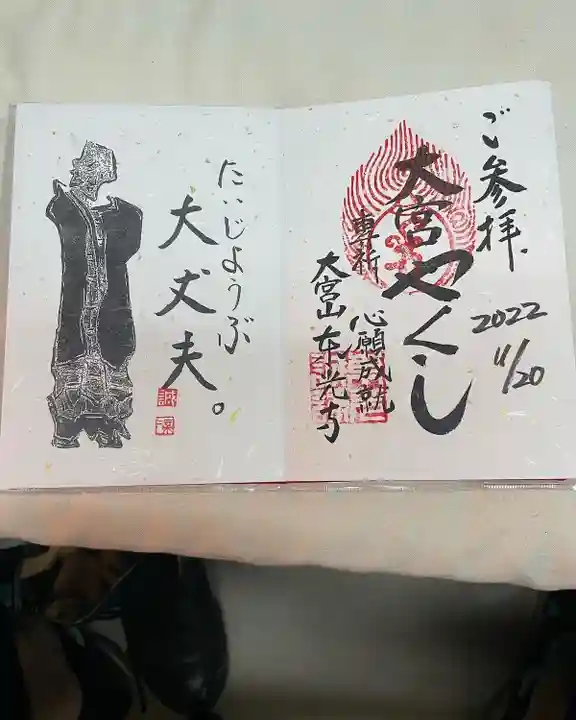 ご参拝
2022
11/20
大宮やくし
専祈
心願成就
大宮山東光寺
だいじようぶ
大丈夫。